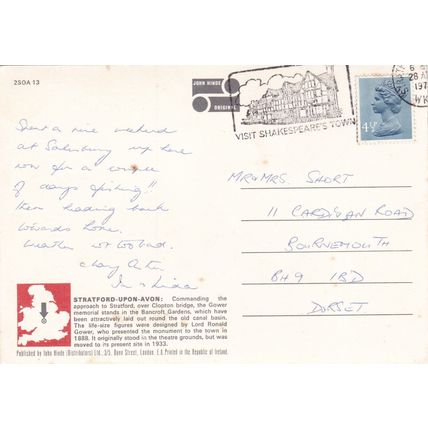 2SOA 13
JOHN HINDE
ORIGINAL
VISIT SHAKESPEARE'S TOWN
28 A
197
4½P
Spent a nice weekend
at Salisbury up here
now for a couple
of days fishing!!
then heading back
towards home.
Weather not too bad.
MR & MRS. SHORT
11 CARDIGAN ROAD
BOURNEMOUTH
BH9 1BD
DORSET
STRATFORD-UPON-AVON: Commanding the
approach to Stratford, over Clopton bridge, the Gower
memorial stands in the Bancroft Gardens, which have
been attractively laid out round the old canal basin.
The life-size figures were designed by Lord Ronald
Gower, who presented the monument to the town in
1888. It originally stood in the theatre grounds, but was
moved to its present site in 1933.
Published by John Hinde (Distributors) Ltd., 3/5, Dean Street, London. E.A. Printed in the Republic of Ireland.